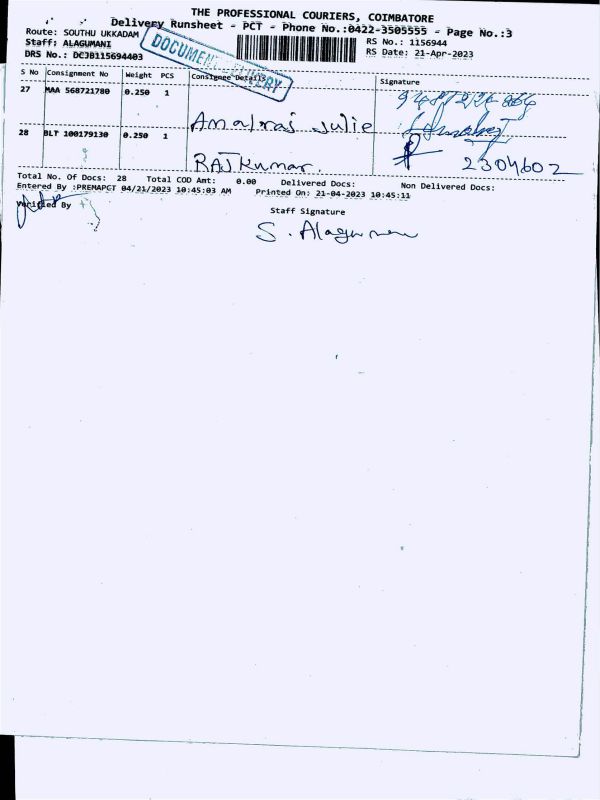 THE PROFESSIONAL COURIERS, COIMBATORE
Delivery Runsheet - PCT - Phone No.:0422-3505555 - Page No.:3
Route: SOUTHU UKKADAM
RS No.: 1156944
Staff: ALAGUMANI
RS Date: 21-Apr-2023
DRS No.: DCJB115694403
DOCUMENT DELIVERY
S No Consignment No Weight PCS Consignee Details Signature
27 MAA 568721780 0.250 1
Amalraj Julie
28 BLT 100179130 0.250 1
RAJKumar. 2304602
Total No. Of Docs: 28 Total COD Amt: 0.00 Delivered Docs: Non Delivered Docs:
Entered By :PREMAPCT 04/21/2023 10:45:03 AM Printed On: 21-04-2023 10:45:11
Verified By
Staff Signature